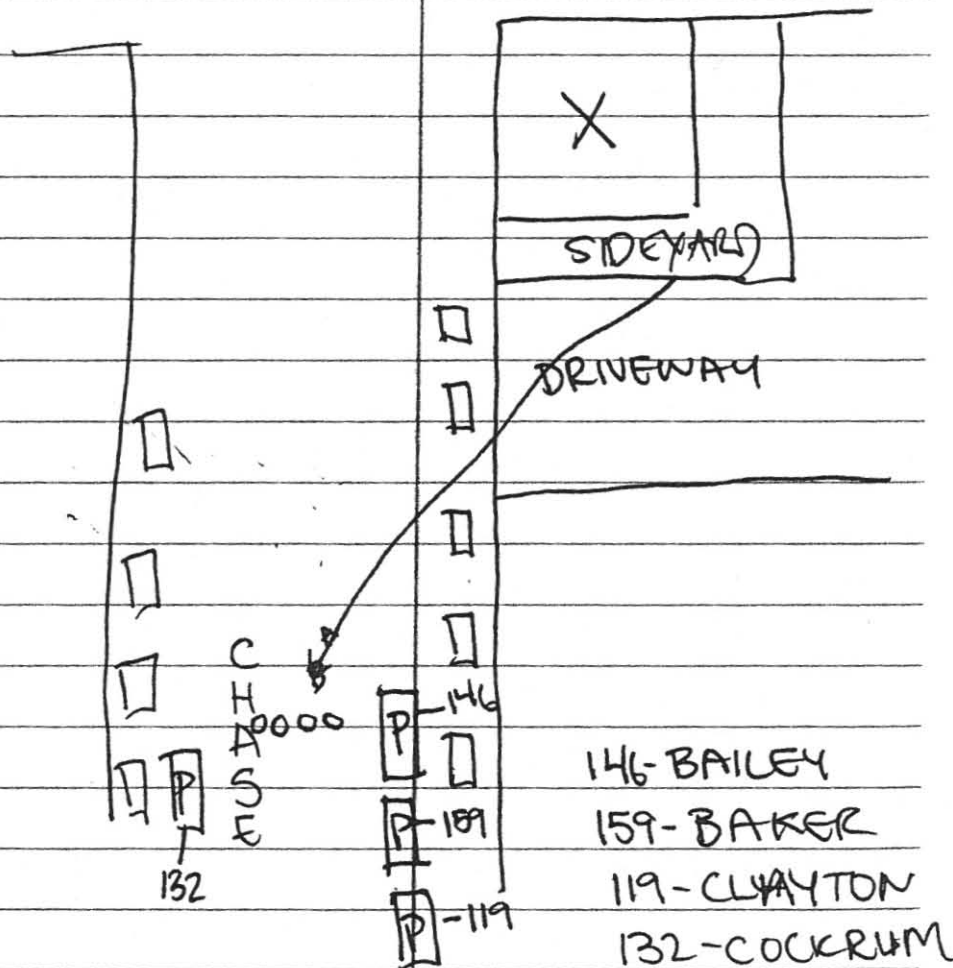 X
SIDEYARD
DRIVEWAY
CHASE
0000
P
146
P
159
P
132
P
119
146-BAILEY
159-BAKER
119-CLAYTON
132-COCKRUM